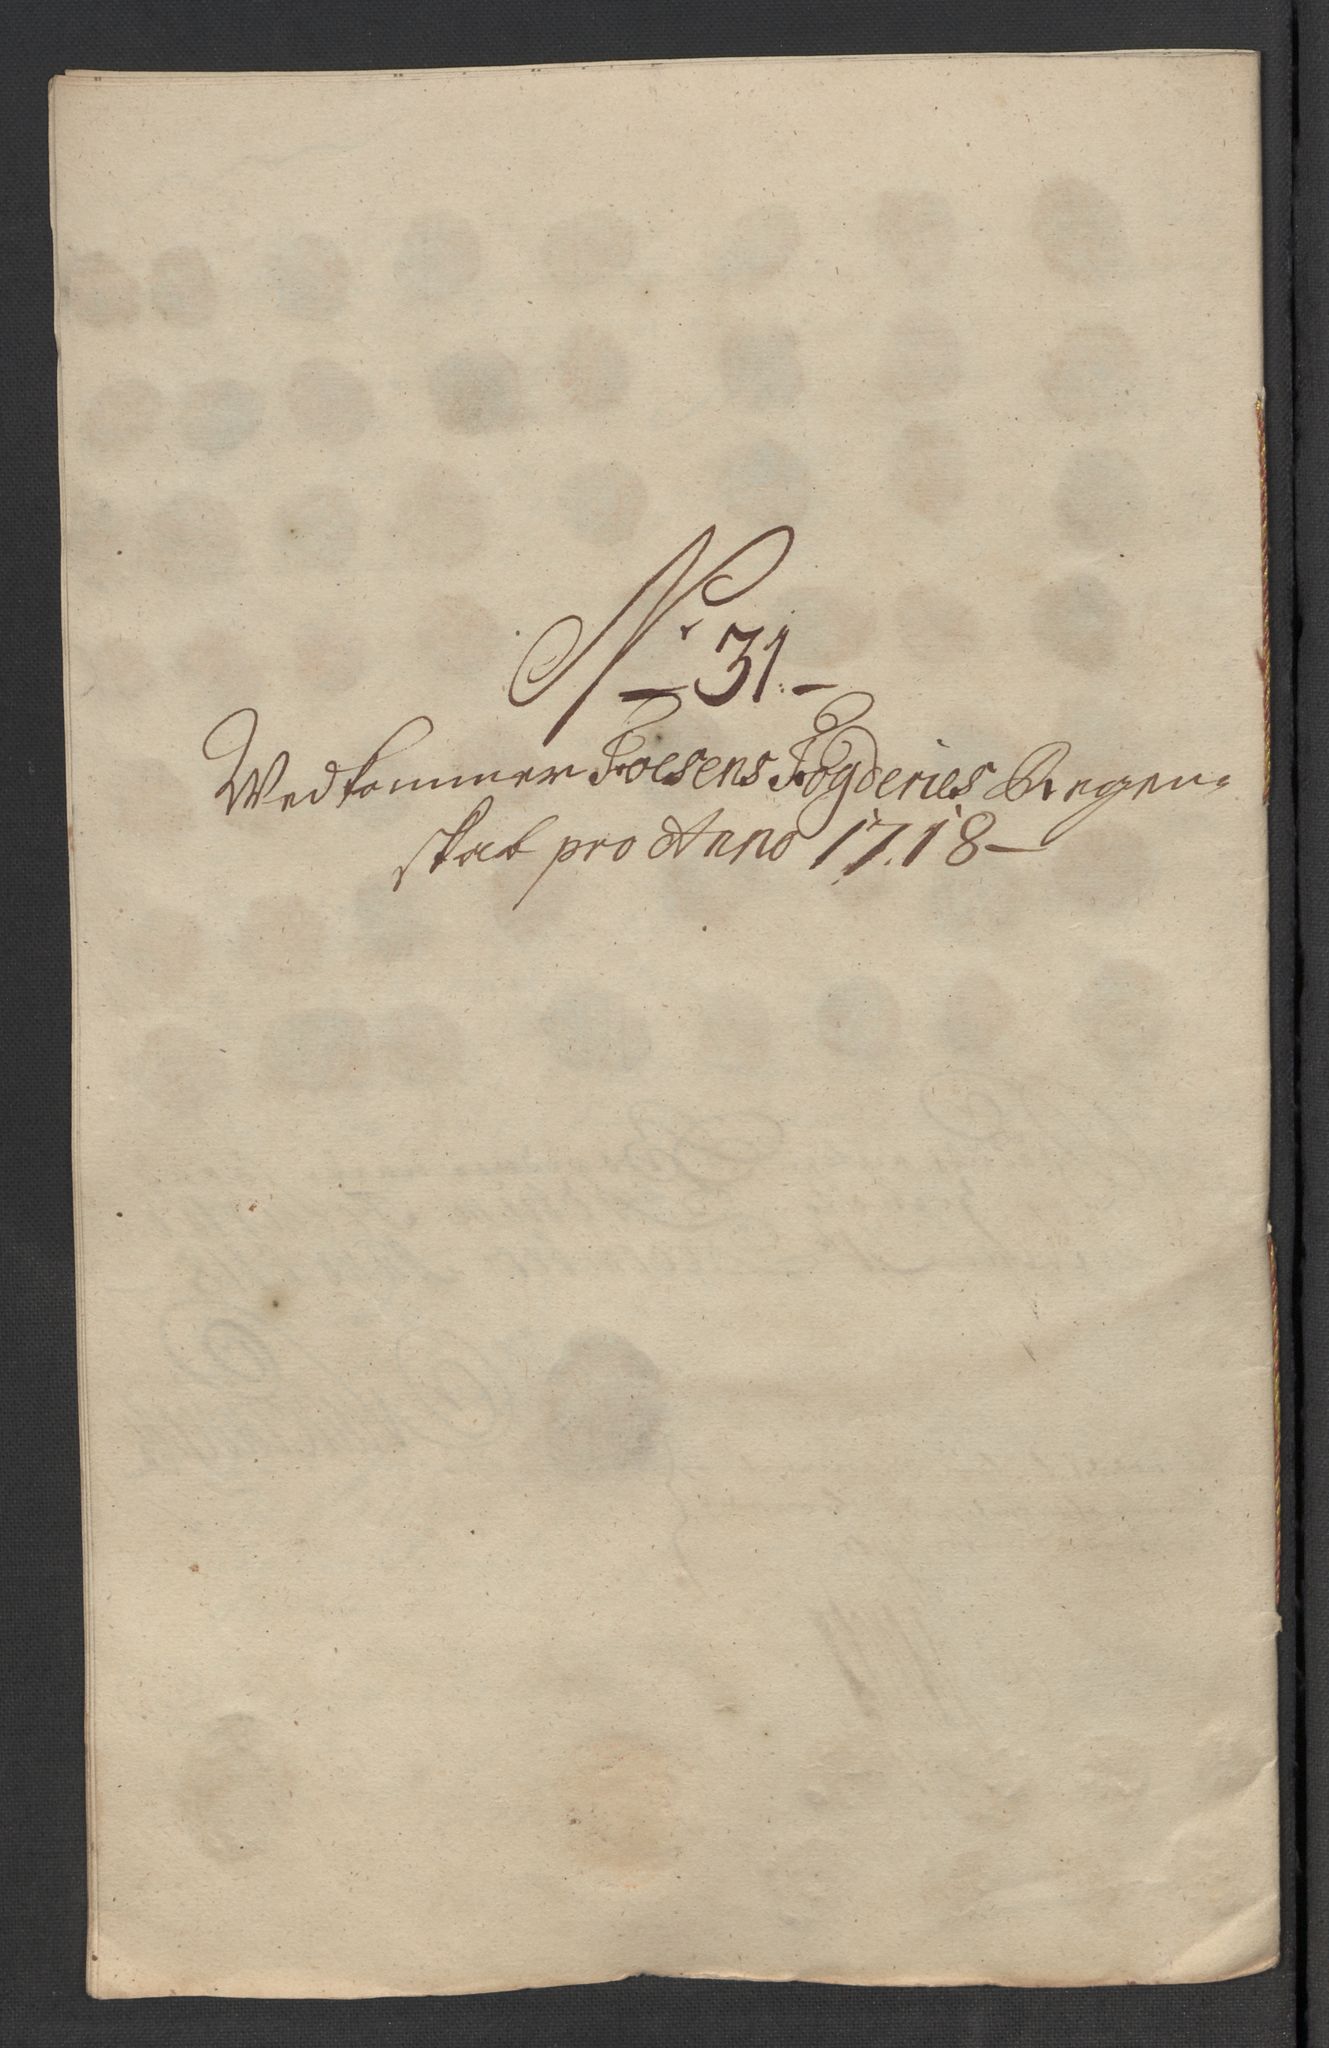 No 31.
Wedkommer Foesens Fogderies Regen-
skab pro Anno 1718